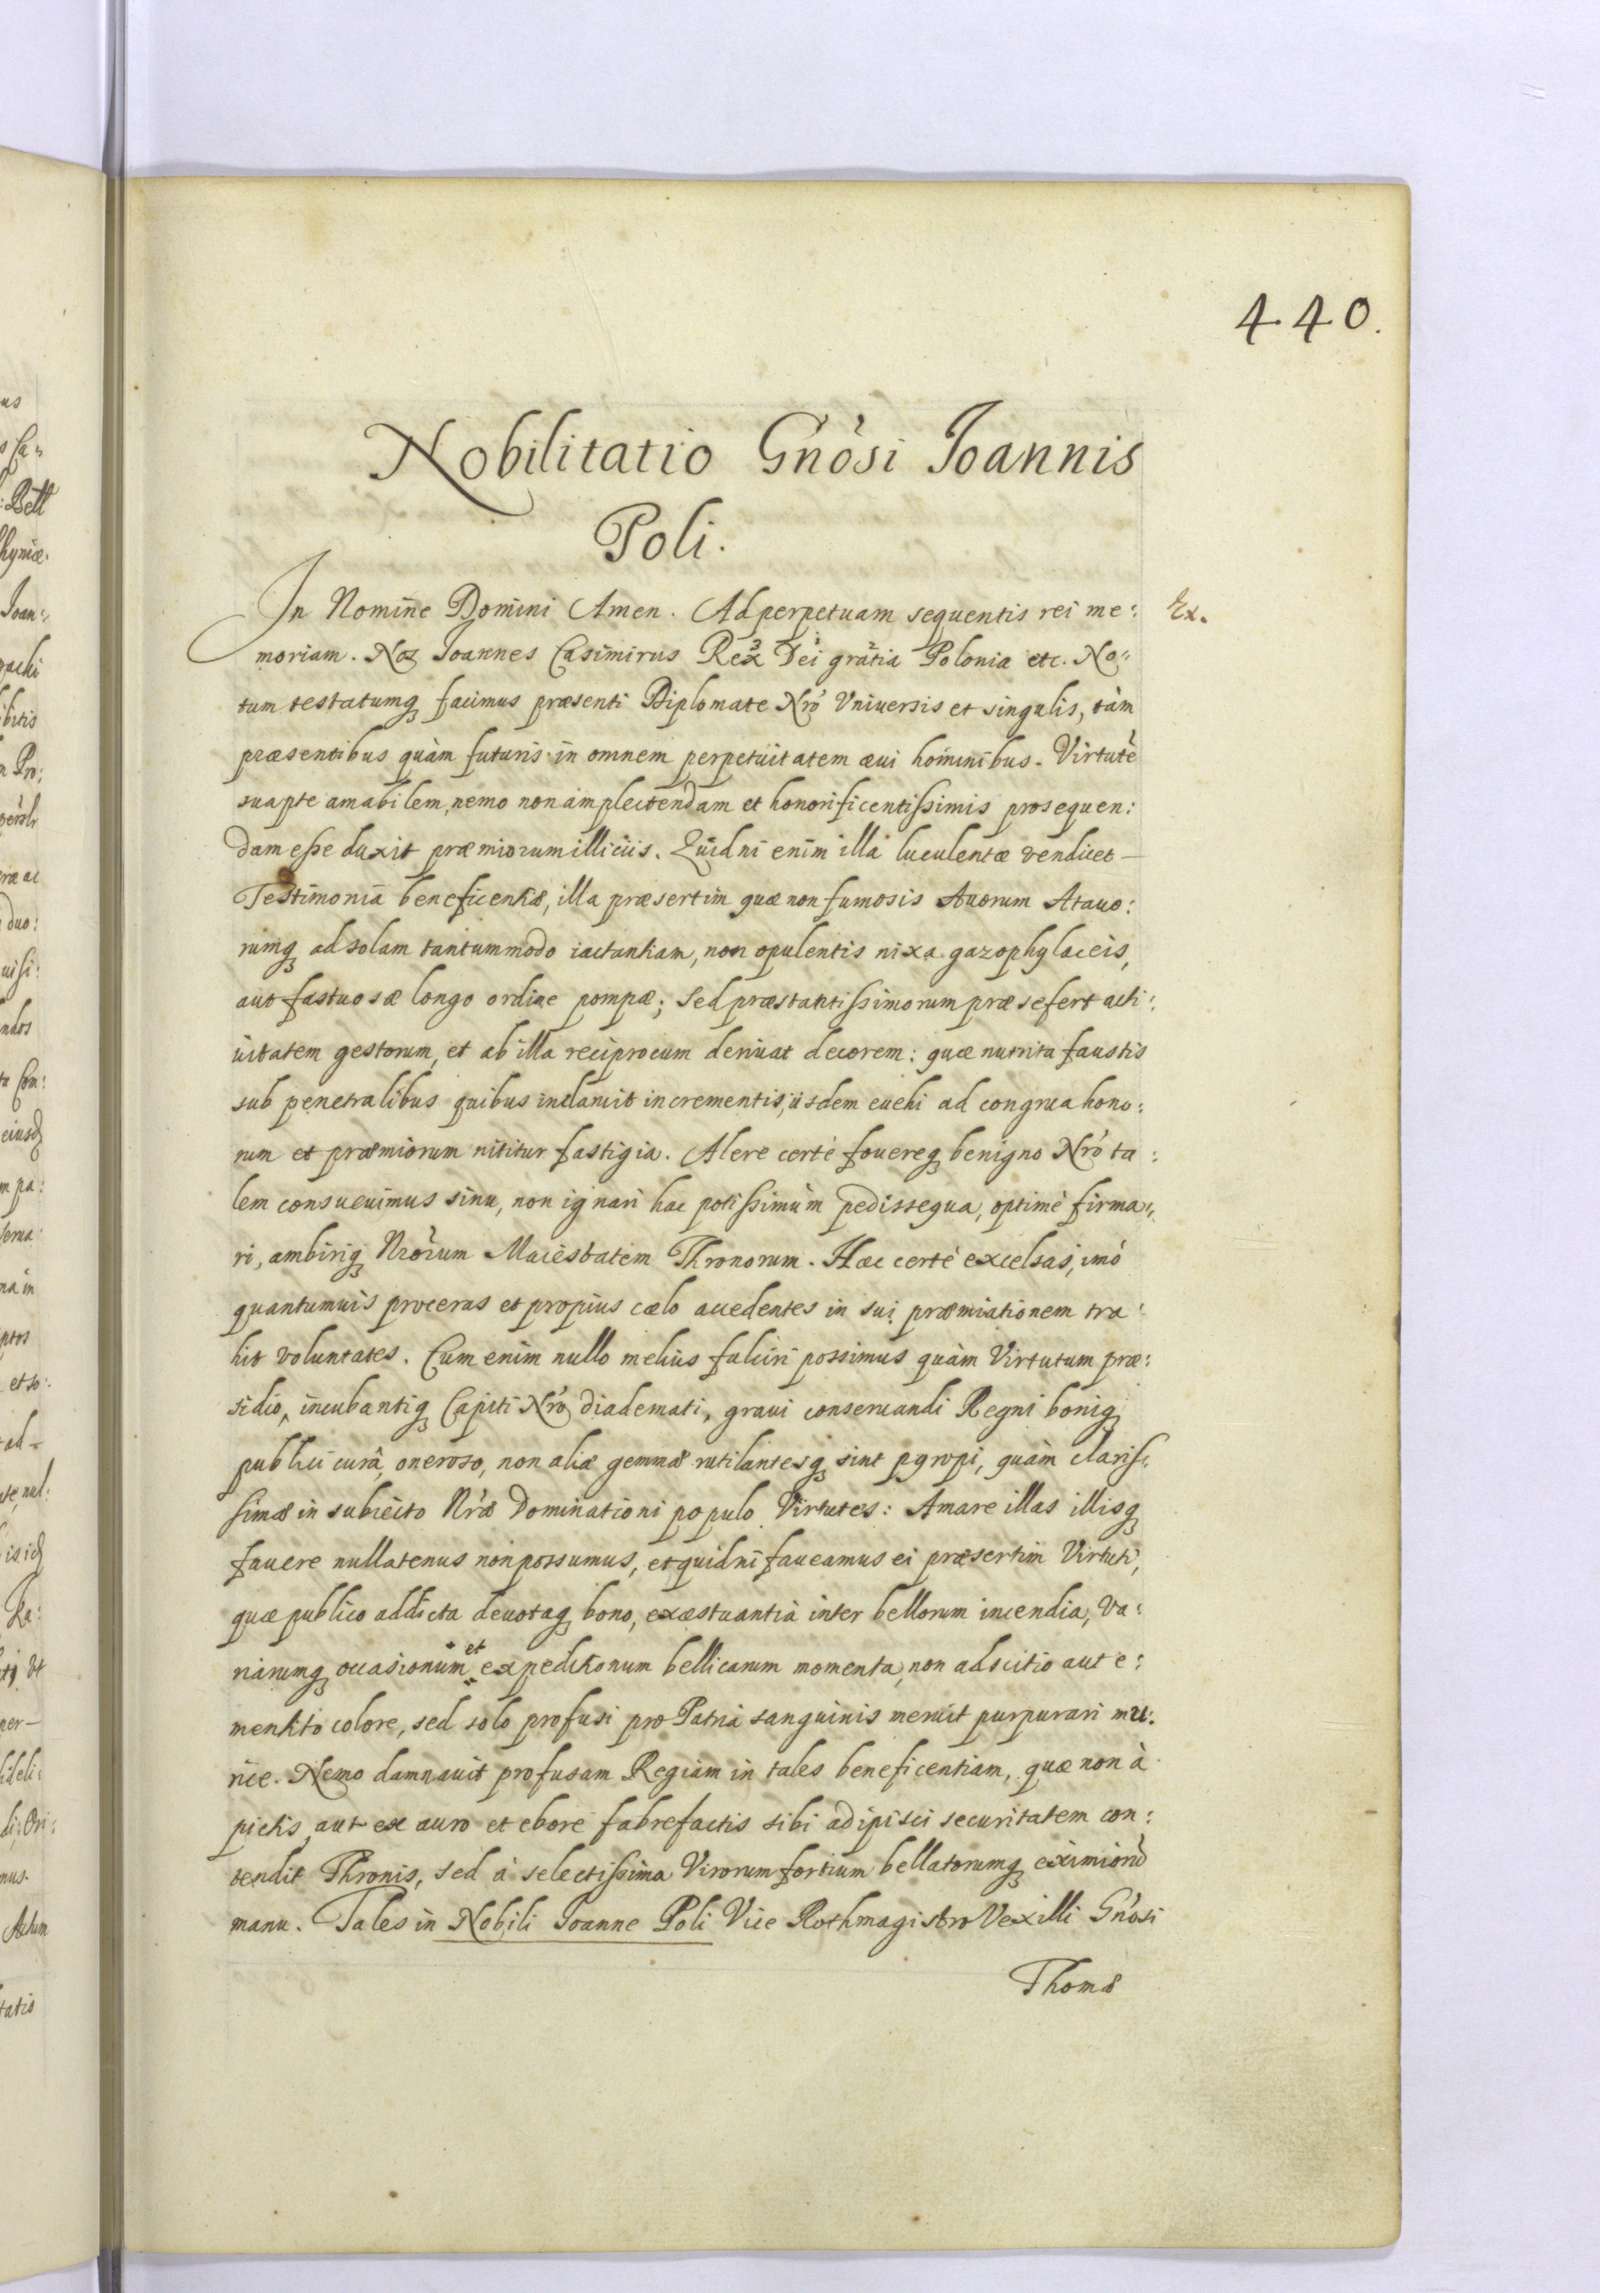 440.
Nobilitatio Gnósi Joannis
Poli.
In Nomine Domini Amen. Ad perpetuam sequentis rei me:
Ex.
moriam. Nos Joannes Casimirus Rex Dei gratia Poloniæ etc. No=
tum testatumq facimus præsenti Diplomate Nrõ Vniuersis et singulis, tàm
præsentibus quàm futuris in omnem perpetuitatem æui hominibus. Virtutẽ
suapte amabilem, nemo non amplectendam et honorificentissimis prosequen:
dam esse duxit præmiorum illicijs. Quid ni enim illa luculentæ vendicet
Testimonia beneficentiæ, illa præsertim quæ non fumosis Auorum Atauo:
rumq ad solam tantummodo iactantiam, non opulentis nixa gazophylaceis,
aut fastuosæ longo ordine pompæ; sed præstantissimorum præ se fert acti:
uitatem gestorum, et ab illa reciprocum deriuat decorem: quæ nutrita faustis
sub penetralibus quibus inclaruit incrementis, ijsdem euehi ad congrua hono:
rum et præmiorum nititur fastigia. Alere certè fouereq benigno Nrõ ta:
lem consueuimus sinu, non ignari hac potissimùm pedissequa, optimè firma=
ri, ambiriq Nrõrum Maiestatem Thronorum. Hæc certè excelsas, imò
quantumuis proceras et propius cælo accedentes in sui præmiationem tra:
hit voluntates. Cum enim nullo melius fulciri possimus quàm Virtutum præ:
sidio, incubantiq Capiti Nrõ diademati, graui conseruandi Regni boniq
publici curâ, oneroso, non aliæ gemmæ rutilantesq sint pyropi, quàm claris=
simæ in subiecto Nræ Dominationi populo Virtutes: Amare illas illisq
fauere nullatenus non possumus, et quidni faueamus ei præsertim Virtuti,
quæ publico addicta deuotaq bono, exæstuantia inter bellorum incendia, va:
riarumq occasionum et expeditionum bellicarum momenta, non adscitio aut e:
mentito colore, sed solo profusi pro Patria sanguinis meruit purpurari mu:
rice. Nemo damnauit profusam Regiam in tales beneficentiam, quæ non à
pictis, aut ex auro et ebore fabrefactis sibi adipisci securitatem con:
tendit Thronis, sed à selectissima Virorum fortium bellatorumq eximiorũ
manu. Tales in Nobili Joanne Poli Vice Rothmagistro Vexilli Gnósi
Thomæ